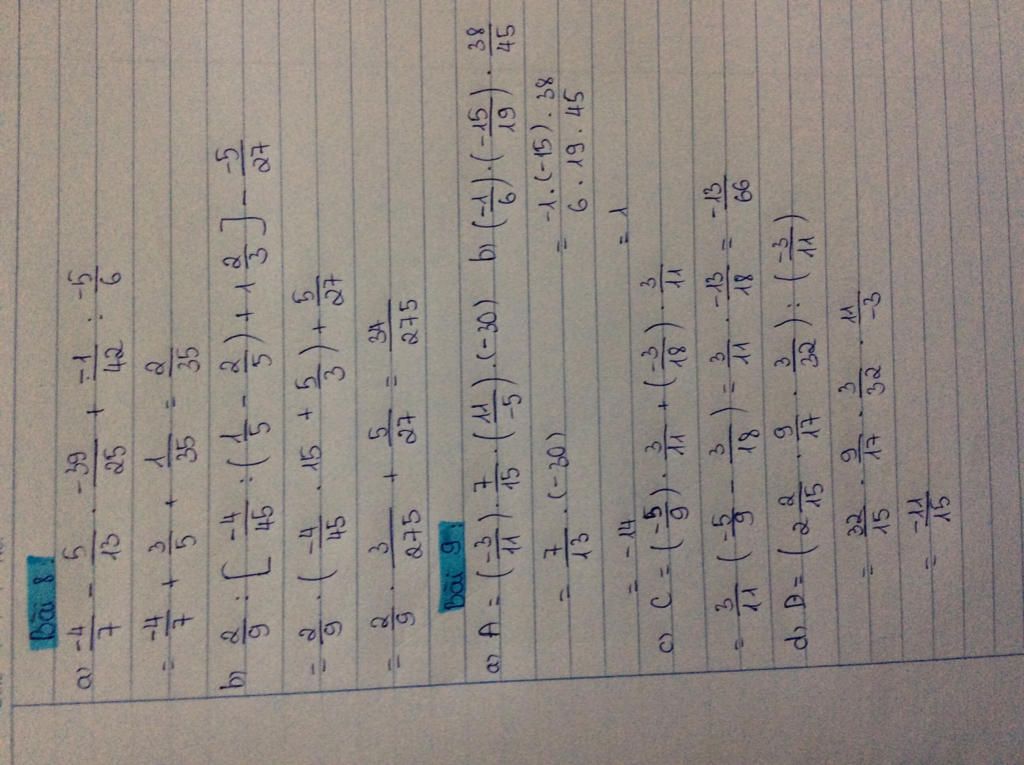 Bài 8:
a) -4/7 - 5/13 . -39/25 + -1/42 : -5/6
= -4/7 + 3/5 + 1/35 = 2/35
b) 2/9 : [ -4/45 : ( 1/5 - 2/5 ) + 1 2/3 ] - -5/27
= 2/9 . ( -4/45 . 15 + 5/3 ) + 5/27
= 2/9 . 3/275 + 5/27 = 37/275
Bài 9:
a) A = ( -3/11 ) . 7/15 . ( 11/-5 ) . (-30) b) ( -1/6 ) . ( -15/19 ) . 38/45
= 7/13 . (-30) = -1 . (-15) . 38 / 6 . 19 . 45
= -14 = 1
c) C = ( -5/9 ) . 3/11 + ( -3/18 ) . 3/11
= 3/11 ( -5/9 - 3/18 ) = 3/11 . -13/18 = -13/66
d) D = ( 2 2/15 . 9/17 . 3/32 ) : ( -3/11 )
= 32/15 . 9/17 . 3/32 . 11/-3
= -11/15